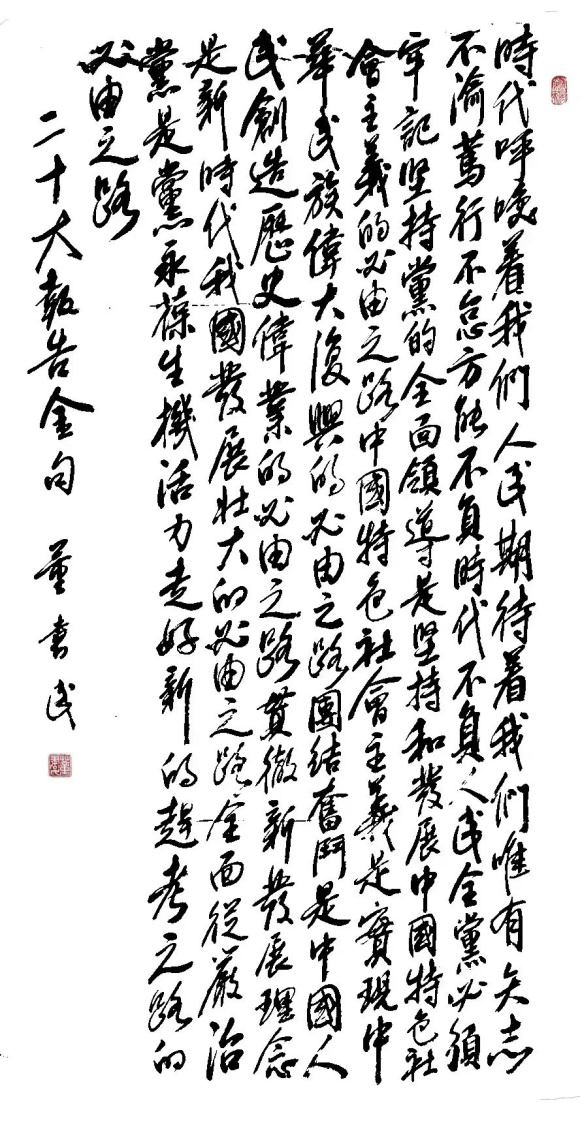 時代呼喚着我們人民期待着我們唯有矢志
不渝篤行不怠方能不負時代不負人民全黨必須
牢記坚持黨的全面領導是坚持和發展中國特色社
會主義的必由之路中國特色社會主義是實現中
華民族偉大復興的必由之路團結奮鬥是中國人
民創造歷史偉業的必由之路貫徹新發展理念
是新時代我國發展壯大的必由之路全面從嚴治
黨是黨永葆生機活力走好新的趕考之路的
必由之路
二十大報告金句 董 民